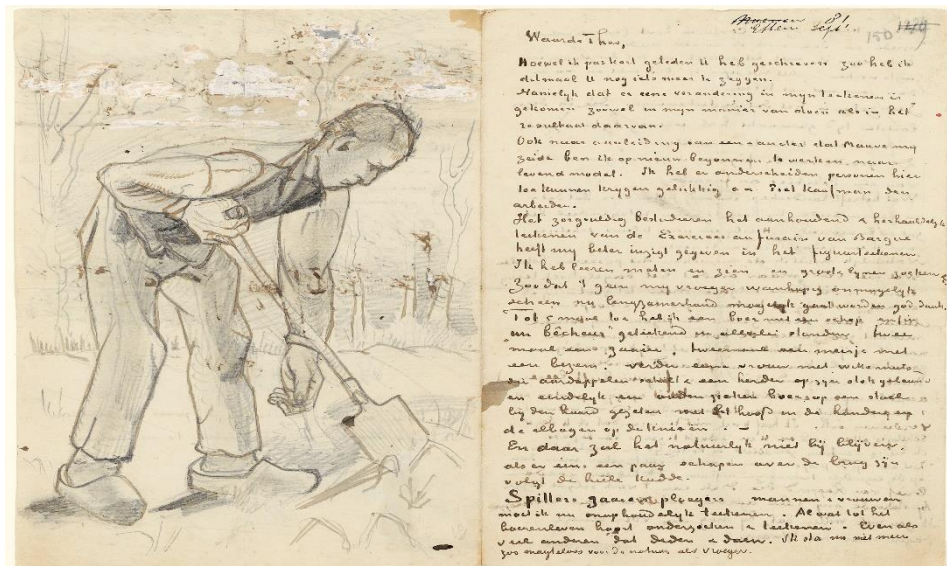 Etten Sept. 81
150 149
Waarde Theo,
Hoewel ik pas kort geleden U heb geschreven zoo heb ik
ditmaal U nog iets meer te zeggen.
Namelijk dat er eene verandering in mijn teekenen is
gekomen zoowel in mijn manier van doen als in het
resultaat daarvan.
Ook naar aanleiding van een & ander dat Mauve mij
zeide ben ik op nieuw begonnen te werken naar
levend model. Ik heb er onderscheiden personen hier
toe kunnen krijgen gelukkig o.a. Piet Kaufman den
arbeider.
Het zorgvuldig bestuderen het aanhoudend & herhaaldelijk
teekenen van de Exercices au fusain van Bargue
heeft mij beter inzigt gegeven in het figuurteekenen.
Ik heb leeren meten en zien en groote lijnen zoeken &
Zoodat 't geen mij vroeger wanhopig onmogelijk
scheen nu langzamerhand mogelijk gaat worden god dank.
Tot 5 maal toe heb ik een boer met een schop enfin
"un bêcheur" geteekend in allerlei standen, twee
maal een zaaier, tweemaal een meisje met
een bezem. verder eene vrouw met witte muts
die aardappelen schilt & een herder op zijn stok geleund
en eindelijk een ouden zieken boer op een stoel
bij den haard gezeten met het hoofd in de handen en
de elbogen op de knieën. -
En daar zal het natuurlijk niet bij blijven,
als er eens een paar schapen over de brug zijn
volgt de heele kudde.
Spitters zaaiers ploegers mannen & vrouwen
moet ik nu onophoudelijk teekenen. Al wat tot het
boerenleven hoort onderzoeken & teekenen. Even als
veel anderen dat deden & doen. Ik sta nu niet meer
zoo magteloos voor de natuur als vroeger.